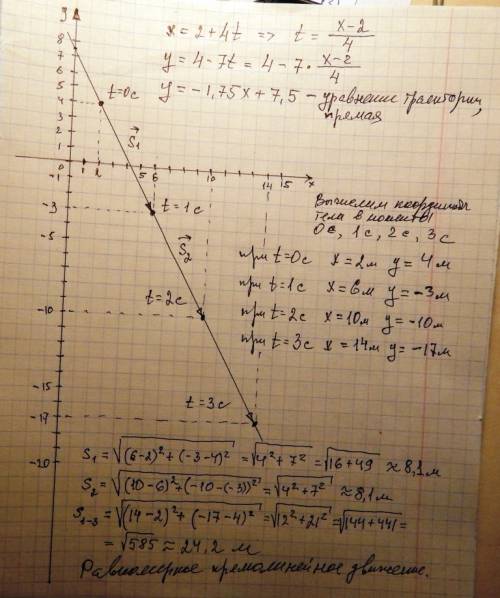 x = 2 + 4t => t = (x-2)/4
y = 4 - 7t = 4 - 7 · (x-2)/4
y = -1,75x + 7,5 - уравнение траектории,
прямая
y
8
7
6
5
4
3
2
1
0
-1
-3
-5
-10
-15
-17
-20
1 2 6 10 14 15 x
t=0c
S₁
t=1c
S₂
t=2c
t=3c
Вычислим координаты
тела в моменты
0c, 1c, 2c, 3c
при t=0c x=2м y=4м
при t=1c x=6м y=-3м
при t=2c x=10м y=-10м
при t=3c x=14м y=-17м
S₁ = √((6-2)²+(-3-4)²) = √(4²+7²) = √(16+49) ≈ 8,1м
S₂ = √((10-6)²+(-10-(-3))²) = √(4²+7²) ≈ 8,1м
S₁₋₃ = √((14-2)²+(-17-4)²) = √(12²+21²) = √(144+441) =
= √585 ≈ 24,2 м
Равномерное прямолинейное движение.